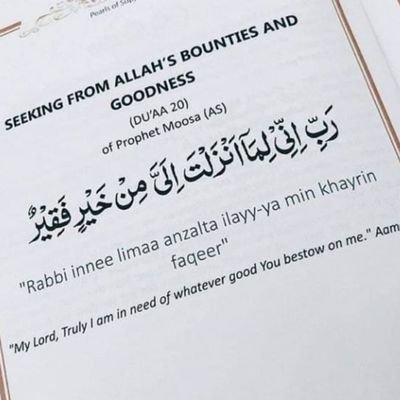 Pearls of Sup
SEEKING FROM ALLAH'S BOUNTIES AND
GOODNESS
(DU'AA 20)
of Prophet Moosa (AS)
رَبِّ اِنِّىْ لِمَاۤ اَنْزَلْتَ اِلَىَّ مِنْ خَيْرٍ فَقِيْرٌ
"Rabbi innee limaa anzalta ilayy-ya min khayrin
faqeer"
"My Lord, Truly I am in need of whatever good You bestow on me." Aam